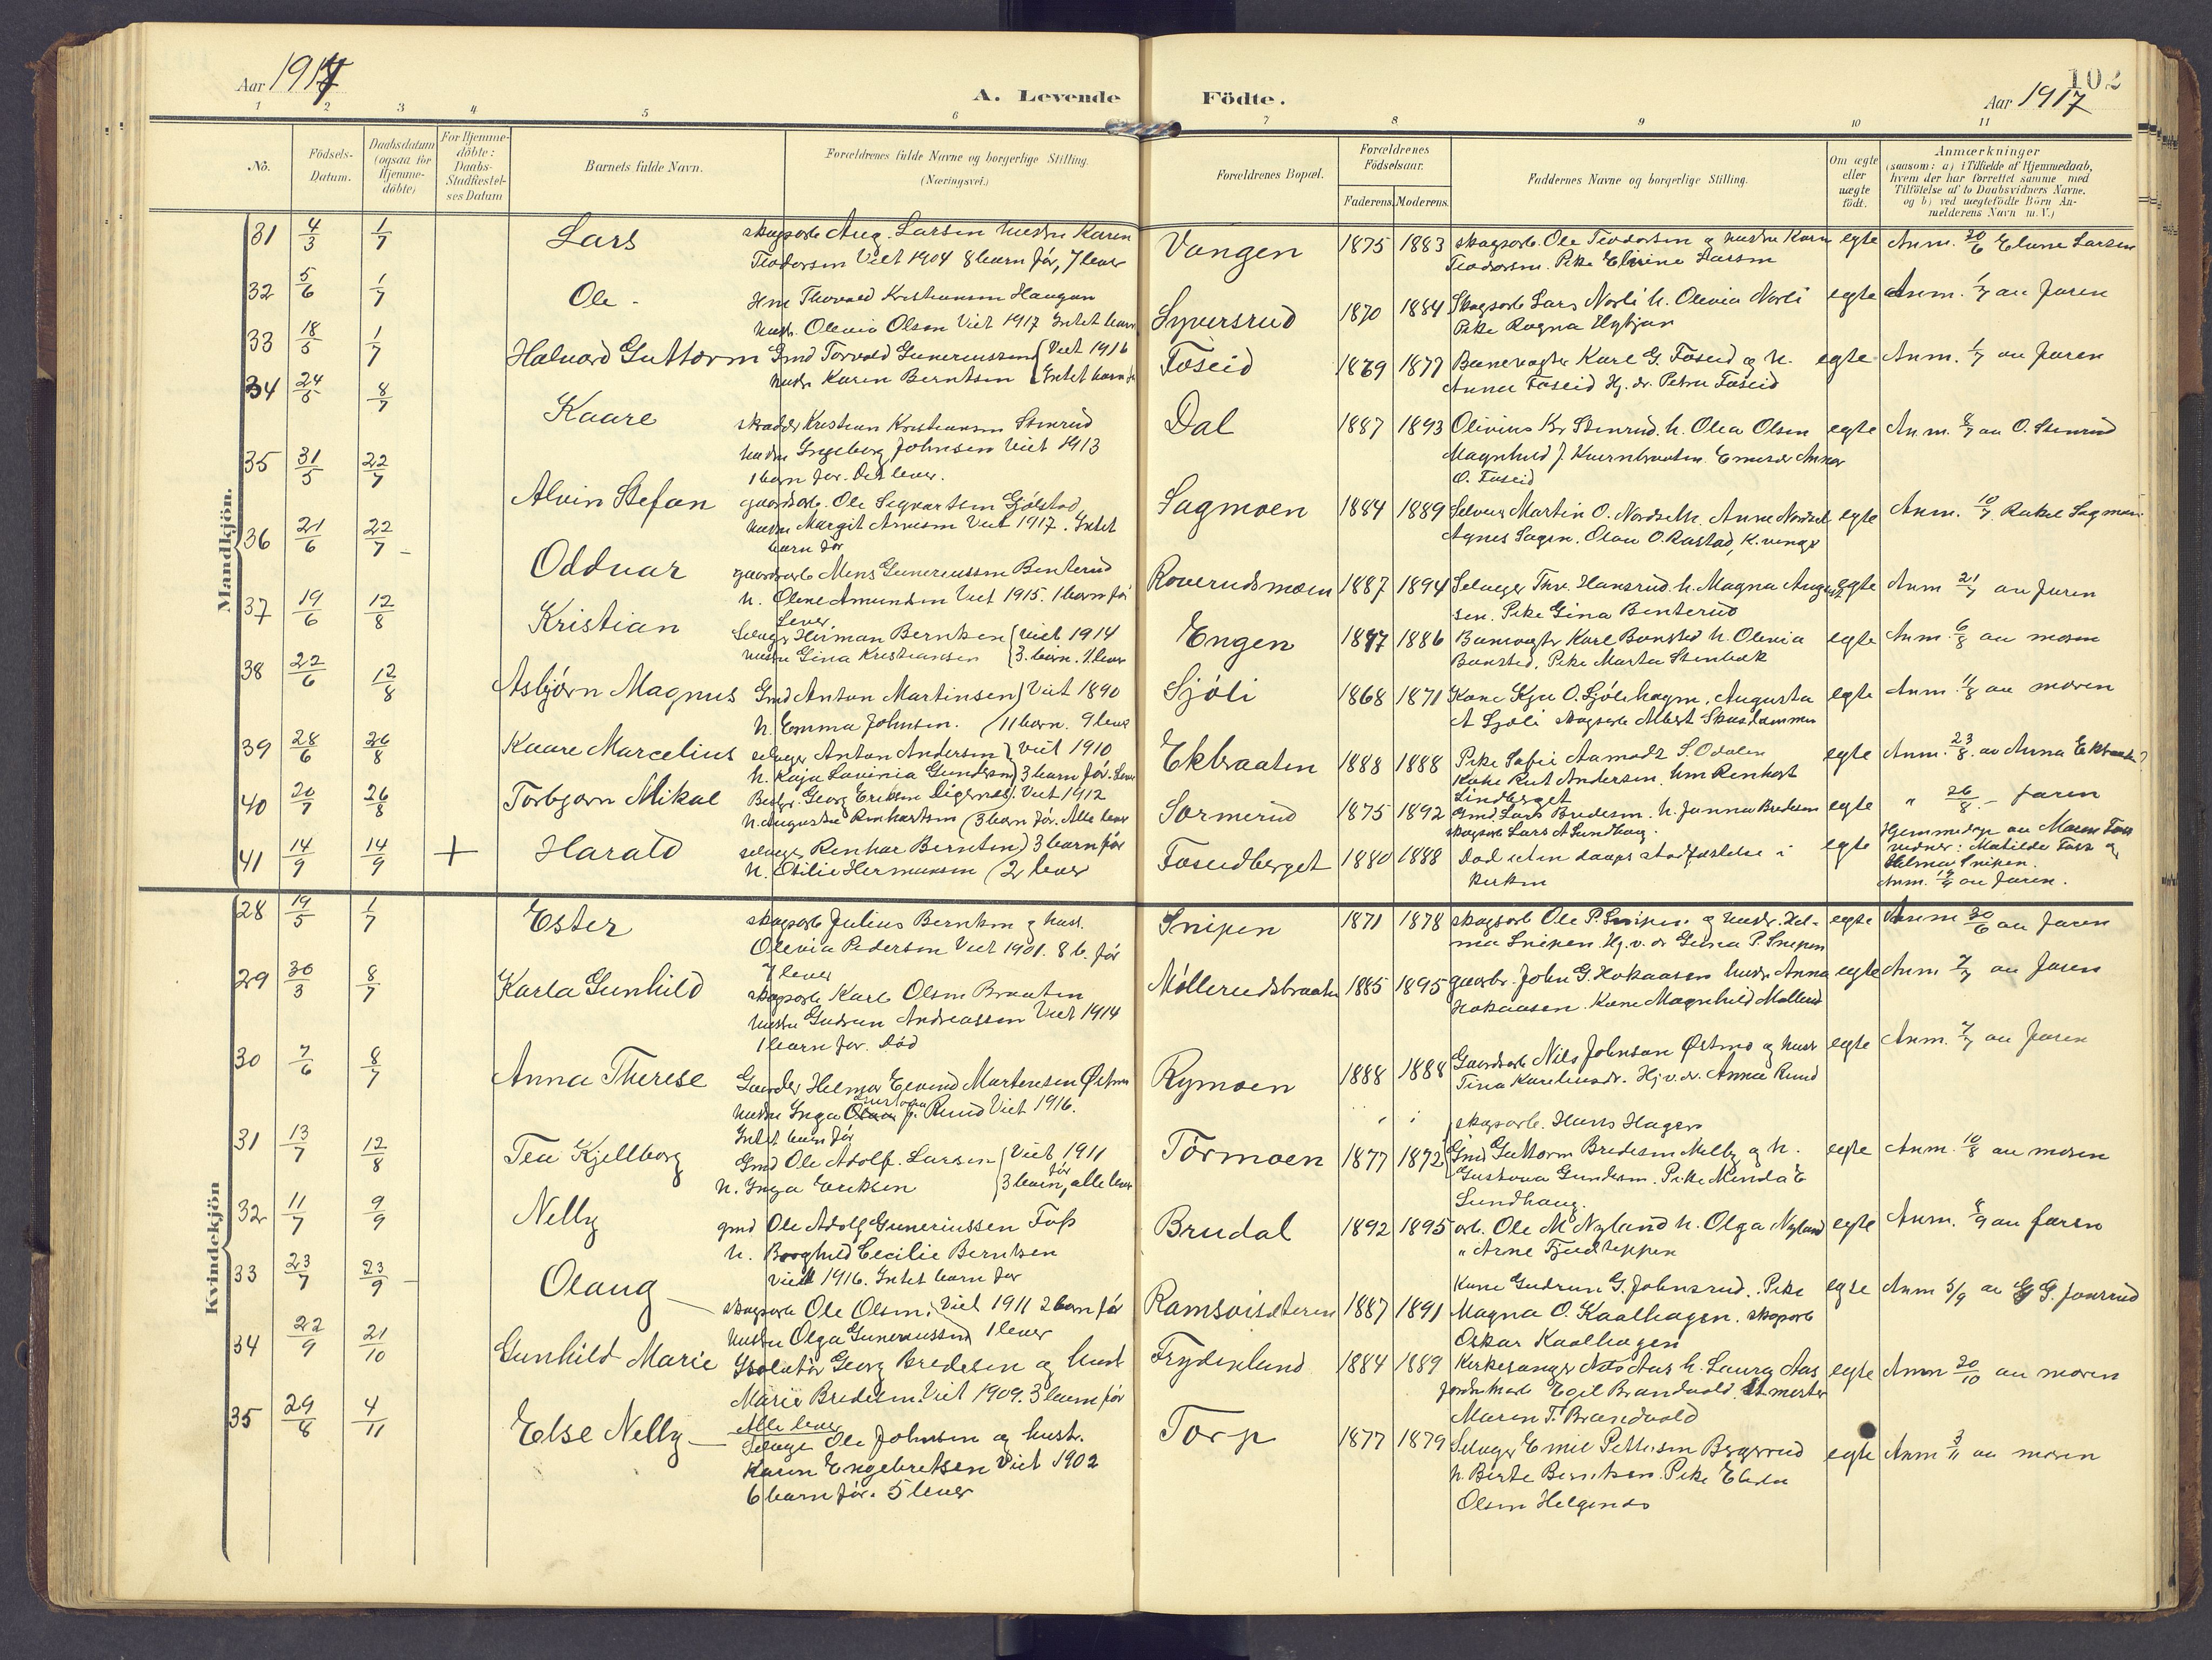 Aar 1917
A. Levende Födte.
102
Aar 1917
1 2 3 4 5 6 7 8 9 10 11
No.
Födsels-Datum.
Daabsdatum (ogsaa for Hjemme-döbte)
For Hjemme-döbte: Daabs-Stadfæstel-ses Datum
Barnets fulde Navn.
Forældrenes fulde Navne og borgerlige Stilling. (Næringsvei.)
Forældrenes Bopæl.
Forældrenes Födselsaar.
Faderens. Moderens.
Faddernes Navne og borgerlige Stilling.
Om ægte eller uægte födt.
Anmærkninger
(saasom: a) i Tilfælde af Hjemmedaab, hvem der har forrettet samme med Tilföielse af to Daabsvidners Navne. og b) ved uegtefödte Börn An-melderens Navn m. V.)
Mandkjön.
31 4/3 1/7 Lars skogsarb Aug. Larsen hustru Karen
Teodorsen Viet 1904 8 barn før, 7 lever
Vangen 1875 1883 skogsarb. Ole Teodorsen og hustru Karen
Teodorsen. Pike Larsen
egte Anm. 30/6 Larsen
32 5/6 1/7 Ole Thorvald Kristiansen Haugen
hustr. Olevia Olsen Viet 1917 Intet barn
Syversrud 1870 1884 Skogsarb Lars Norli h. Olevia Norli
Pike Ragna
egte Anm. 1/7 av faren
33 18/5 1/7 Halvard Guttorm Gmd Torvald Guneriussen Viet 1916
hustr Karen Berntsen Intet barn før
Foseid 1869 1877 Banevogter Karl G. Foseid og h.
Anna Foseid Hj. dr. Petra Foseid
egte Anm. 1/7 av faren
34 24/5 8/7 Kaare skrædder Kristian Kristiansen Stenrud
hustru Ingeborg Johnsen Viet 1913
1 barn før. Det lever.
Dal 1887 1893 Olivius Kr Stenrud. h. Olea Olsen
Magnhild J. Kvernbraaten.
O. Foseid
egte Anm. 8/7 av O. Stenrud
35 31/5 22/7 Alvin Stefan gaardsarb. Ole Sigvartsen Gjølstad
hustru Margit Arnesen Viet 1917. Intet
barn før
Sagmoen 1884 1889 Selveier Martin O. Nordseth. Anne Nordset
Agnes Sagen. Olav O. Rastad, K.vinger
egte Anm. 10/7 Rakel Sagmoen
36 21/6 22/7 Oddvar gaardsarb Mens Gunerinssen Benterud
h. Oline Amundsen Viet 1915. 1 barn før
lever
Roverudsmoen 1887 1894 Selveger Thv. Hansrud. h. Magna August-
sen. Pike Gina Benterud
egte Anm 21/7 av faren
37 19/6 12/8 Kristian Selveger Herman Berntsen Viet 1914
hustru Gina Kristiansen 3. barn. 1 lever
Engen 1887 1886 Banevogter Karl Bansted h. Olevia
Bansted, Pike Marta Stenbæk
egte Anm. 6/8 av moren
38 22/6 12/8 Asbjørn Magnus Gmd Anton Martinsen Viet 1890
h. Emma Johnsen. 11 barn. 9 lever
Sjøli 1868 1871 Kone O. Sjølihagen, Augusta
A Sjøli skogsarb Albert Skasdammen
egte Anm. 11/8 av moren
39 28/6 26/8 Kaare Marcelius selveger Anton Andersen Viet 1910
h. Kaja Lovinia Gundersen 3 barn før. Lever
Ekbraaten 1888 1888 Pike Sofie Aamodt S. Odalen
Kone Rut Andersen. Renhart
Lindberget
egte Anm. 23/8 av Anna Ekbraaten
40 20/7 26/8 Torbjørn Mikal Bestyr. Georg Eriksen Digernes. Viet 1912
h. Augusta Renhartsen 3 barn før. Alle lever
Sormerud 1875 1892 Gmd. Lars Bredesen. h. Janna Bredesen
skogsarb Lars A Sundhaug.
egte " 26/8 - faren
41 14/9 14/9 + Harald selveger Renhar Berntsen 3 barn før
h. Otilie Hermansen 2 lever
Foseidberget 1880 1888 Død uten daaps stadfæstelse i
kirken
egte Hjemmedøpt av Maren Foss
vidner: Matilde Foss og
Helma Snipen.
Anm. av faren.
Kvindekjön
28 19/5 1/7 Ester skogsarb Julius Berntsen og hust.
Olevia Pedersen Viet 1901. 8 b. før
7 lever
Snipen 1871 1878 skogsarb Ole P. Snipen og hustr. Hel-
ma Snipen. Hj. v. dr Gina P. Snipen
egte Anm 30/6 av faren
29 30/3 8/7 Karla Gunhild skogsarb Karl Olsen Braaten
hustru Gudrun Andreassen Viet 1914
1 barn før. Død
Møllerudsbraaten 1885 1895 gaardbr. John G. Hokaasen hustr Anna
Hokaasen. Kone Magnhild Møllerud
egte Anm 7/7 av faren
30 7/6 8/7 Anna Therese Helmer Eivind Martinsen Østmo
hustru Inga J. Rund Viet 1916.
Intet barn før
Rymoen 1888 1888 Gaardsarb Nils Johnsen Østmo og hust
Tina Kareliusdr. Hj. v. dr. Anna Rund
egte Anm. 7/7 av faren
31 13/7 12/8 Tea Kjellborg Gmd Ole Adolf. Larsen Viet 1911
h. Inga Eriksen 3 barn før, alle lever
Tørmoen 1877 1872 skogsarb. Hans Hagen
Gmd Guttorm Bredesen Melby og h.
Gustava Gundersen. Pike Minda E
Sundhaug.
egte Anm. 10/8 av moren
32 11/7 9/9 Nelly gmd Ole Adolf Gunerinssen Foss
h. Borghild Cecilie Berntsen
viet 1916. Intet barn før
Brudal 1892 1895 arb. Ole M Nyland h. Olga Nyland
" Arne Tjuekleppen
egte Anm. 8/9 av faren
33 23/7 23/9 Olaug skogsarb Ole Olsen. Viet 1911 2 barn før
hustru Olga Gunerinssen 1 lever
Ramsøisæteren 1887 1891 Kone Gudrun G. Johnsrud. Pike
Magna O. Kaalhagen. skogsarb
Oskar Kaalhagen
egte Anm 5/9 av G. Jonsrud
34 22/9 21/10 Gunhild Marie Isolatør Georg Bredesen og hust
Marie Bredesen. Viet 1909. 3 barn før
Alle lever
Frydenlund 1884 1889 Kirkesanger Aas h. Laura Aas
Egil Brandvold.
Maren T. Brandvold
egte Anm 20/10 av moren
35 29/8 4/11 Else Nelly Selveger Ole Johnsen og hust.
Karen Engebretsen Viet 1902
6 barn før. 5 lever
Torp 1877 1879 Selveger Emil Pettersen Bergerud
h. Berte Berntsen. Pike
Olsen Helgenes
egte Anm 3/11 av moren